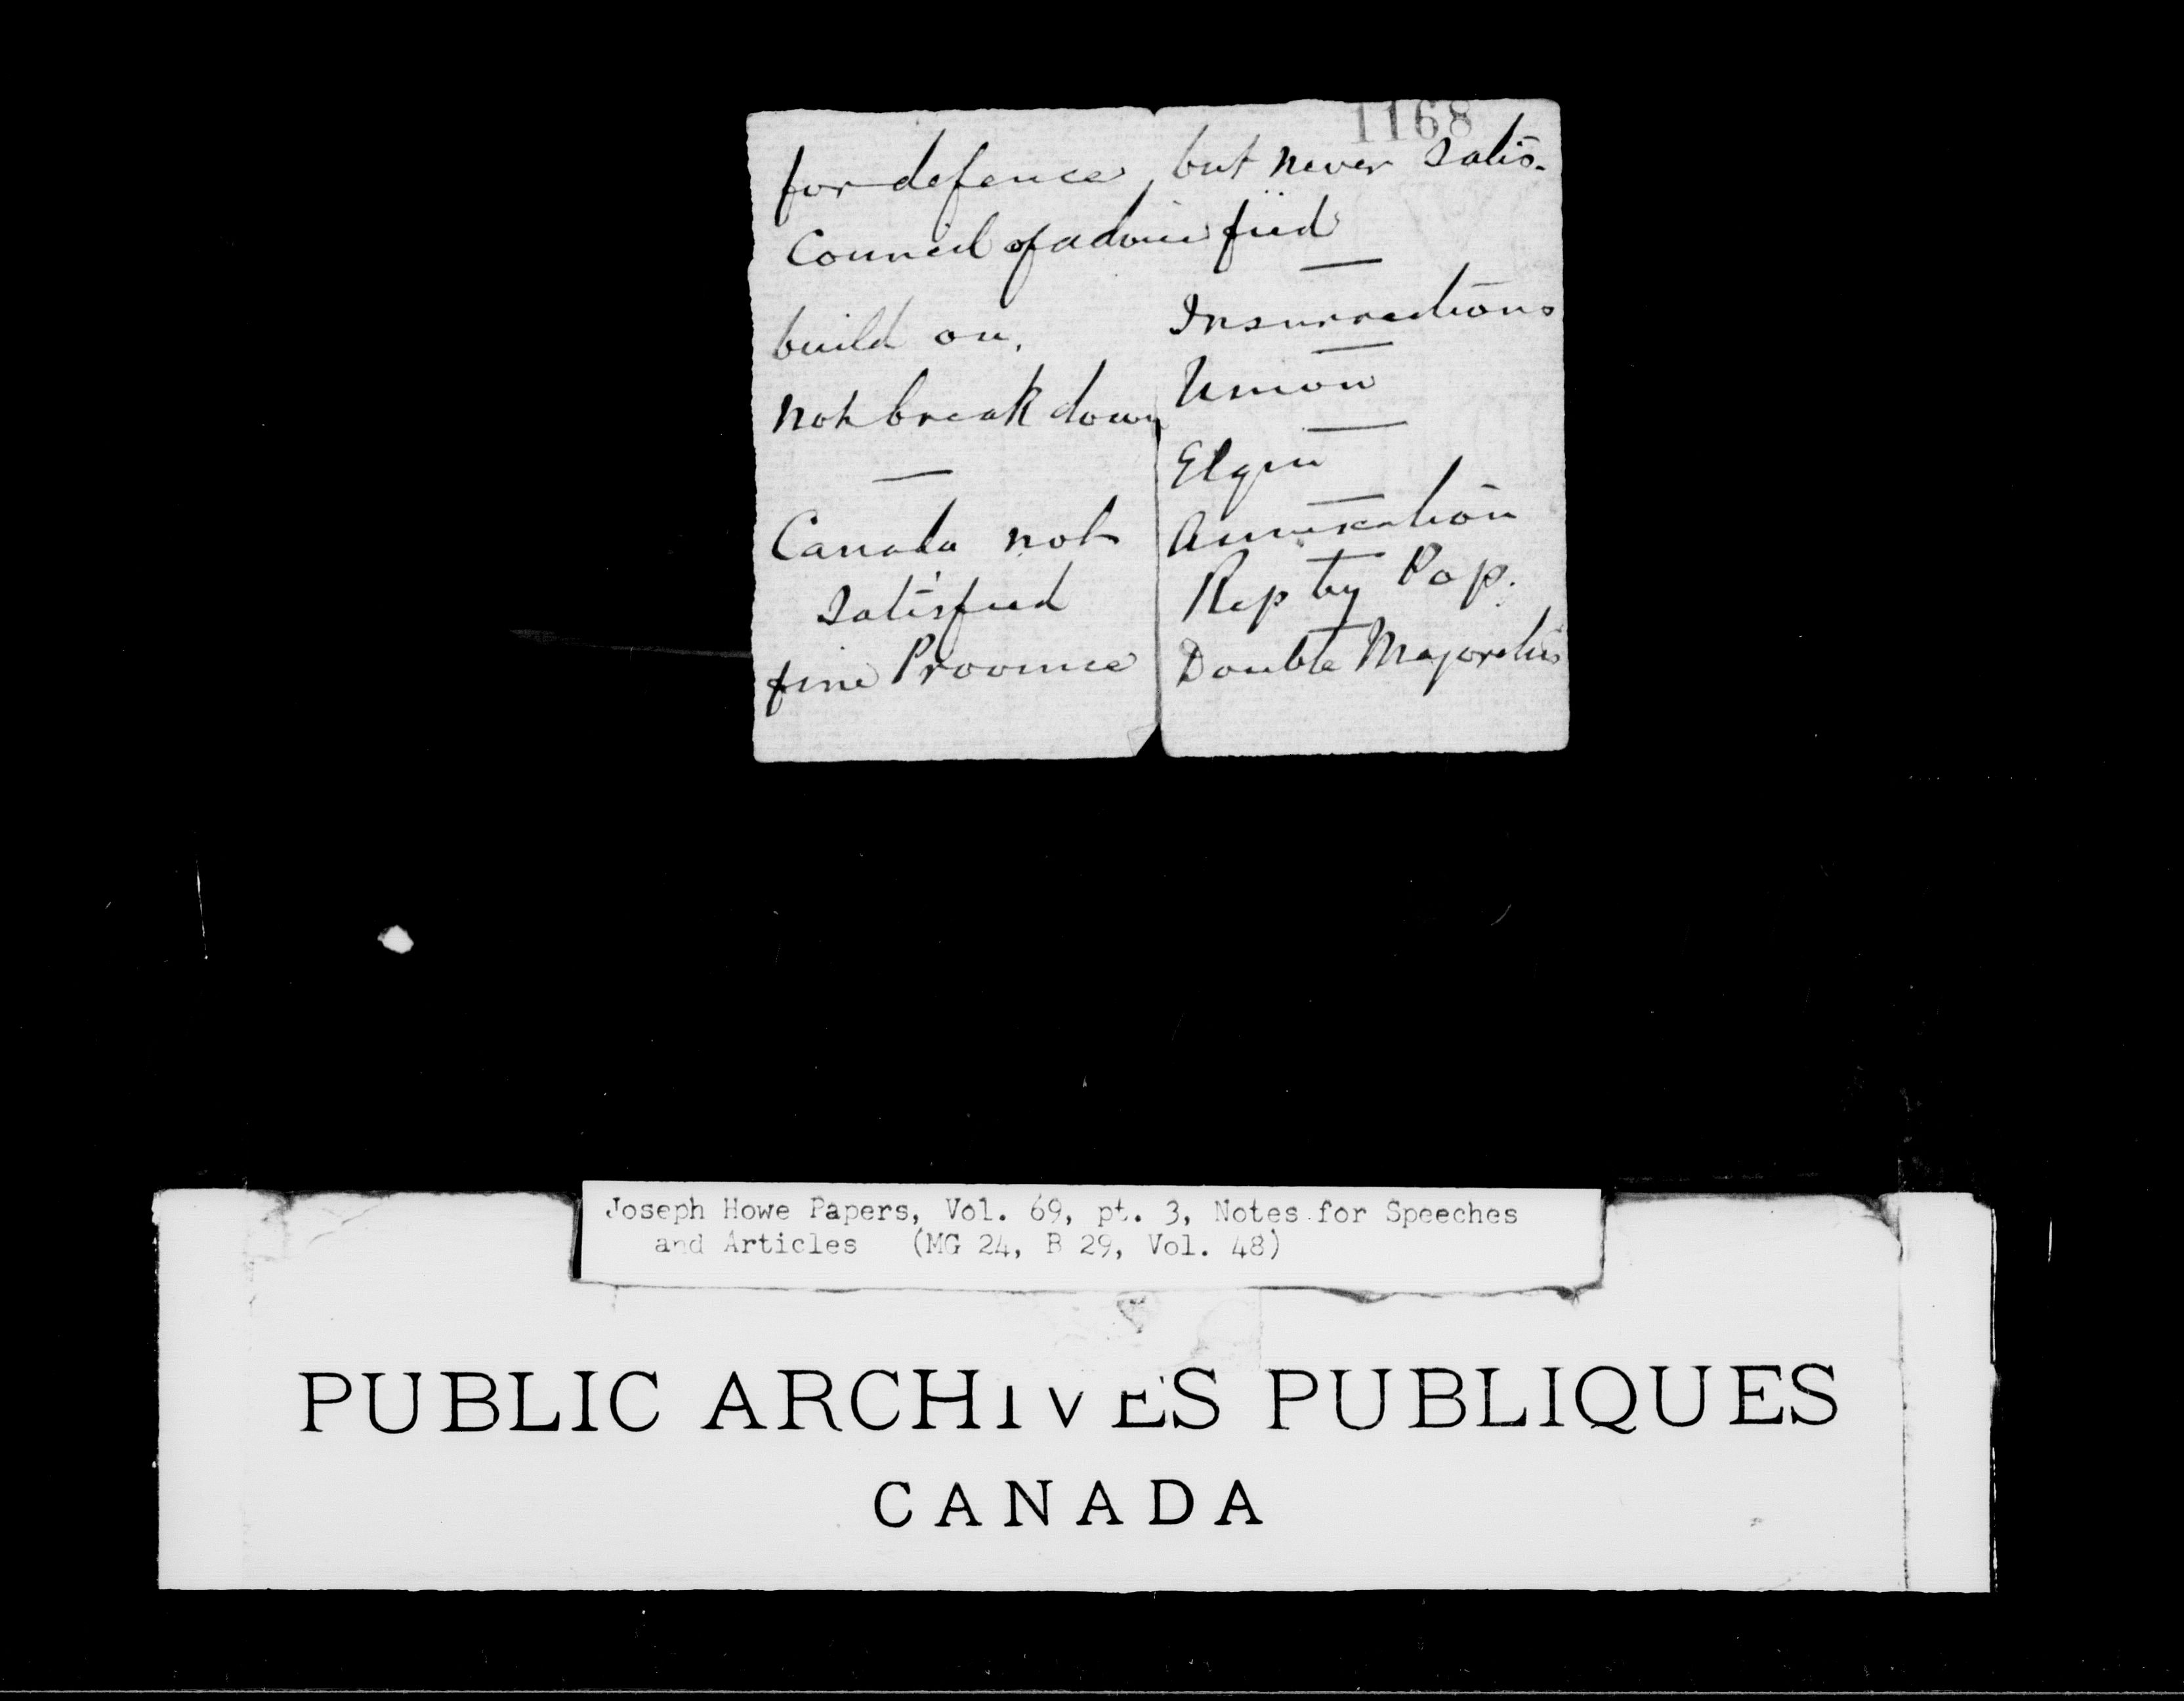 1168
for defence
Council of advice
build on.
not break down
Canada not
satisfied
fine Province
but never satis-
fied
Insurrections
Union
Elgin
Annexation
Rep by Pop.
Double Majorities
Joseph Howe Papers, Vol. 69, pt. 3, Notes for Speeches
and Articles (MG 24, B 29, Vol. 48)
PUBLIC ARCHIVES PUBLIQUES
CANADA